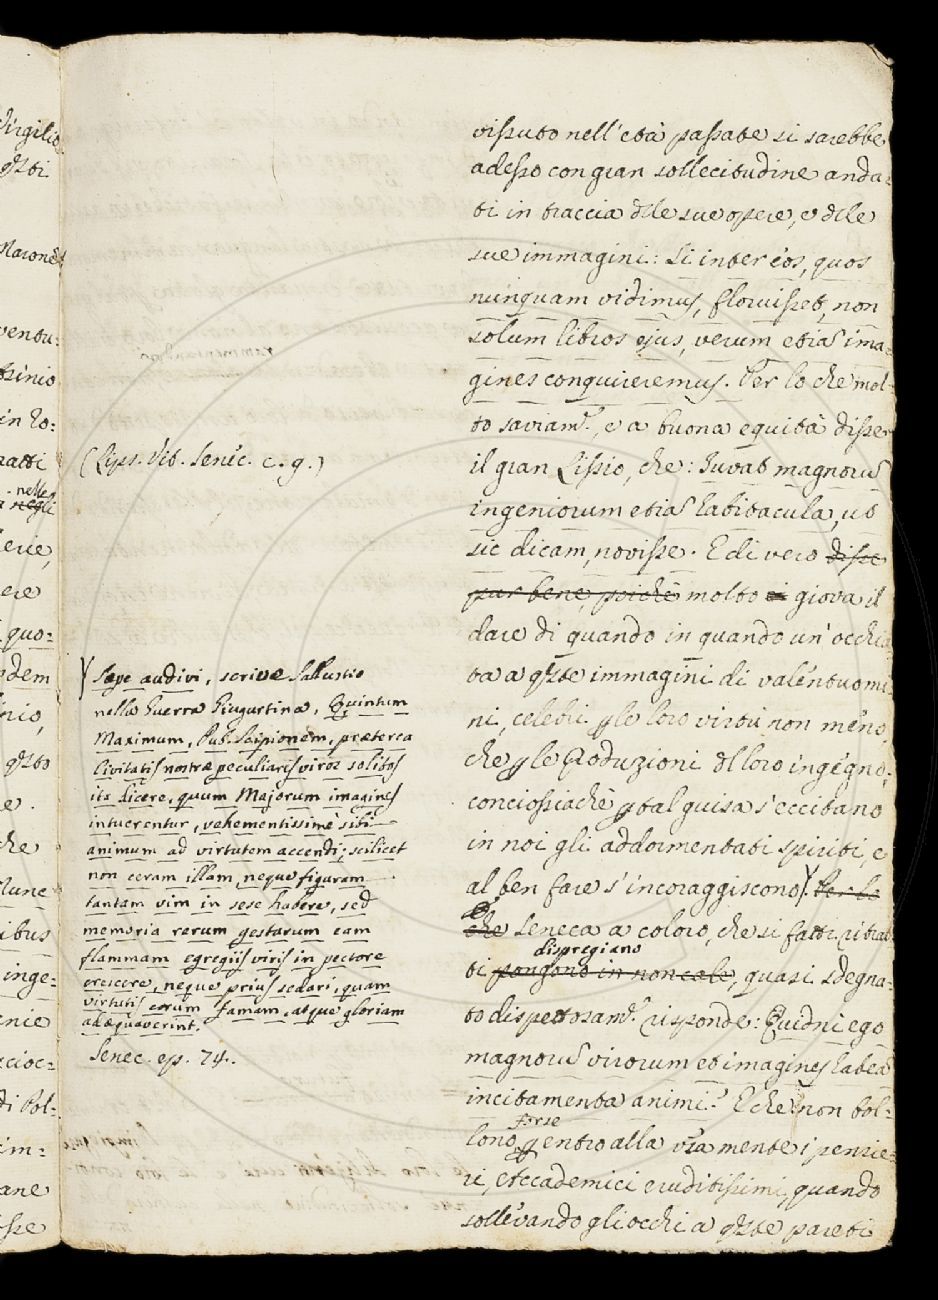 Virgilio
q̃sti
Marone
ventu:
trinio
in Ro:
ratti
nelle
negli
erie,
ere
quo:
odem
nio,
q̃sto
e.
che
tune
ibus
inge:
enie
cioc:
di Pol:
im:
ane
osse
(Lips. Vit. Senec. c. 9.)
Sæpe audivi, scrive Sallustio
nella Guerra Giugurtina, Quintum
Maximum, Pub. Scipionem, præterea
Civitatis nostræ peculiares viros solitos
ita dicere, quum Majorum imagines
intuerentur, vehementissimè sibi
animum ad virtutem accendi; scilicet
non ceram illam, neque figuram
tantam vim in sese habere, sed
memoria rerum gestarum eam
flammam egregiis viris in pectore
crescere, neque prius sedari, quam
virtutis eorum famam, atque gloriam
adæquaverint.
Senec. ep. 74.
vissuto nell'età passate si sarebbe
adesso con gran sollecitudine anda:
ti in traccia dlle sue opere, e dlle
sue immagini: Si inter eos, quos
nunquam vidimus, floruisset, non
solum libros ejus, verum etiã ima:
gines conquireremus. Per lo che mol:
to saviam.e, e a buona equità disse
il gran Lissio, che: Juvat magnorũ
ingeniorum etiã habitacula, ut
sic dicam, novisse. E di vero disse
pur bene, poiché molto giova il
dare di quando in quando un'occhia
ta a q̃ste immagini di valentuomi
ni, celebri p̱ le loro virtù non meno,
che p̱ le Produzioni dl loro ingegno;
conciossiachè p̱ tal guisa s'eccitano
in noi gli addormentati spiriti, e
al ben fare s'incoraggiscono. Per lo
che Seneca a coloro, che si fatti ritrat
dispregiano
ti pongono in non cale, quasi sdegna:
to dispettosam.e risponde: Quidni ego
magnorũ virorum et imagines habeã
incitamenta animi? E che non bol:
forse
lono p̱ entro alla vr̃a mente i pensie:
ri, Accademici eruditissimi, quando
sollevando gli occhi a q̃ste pareti